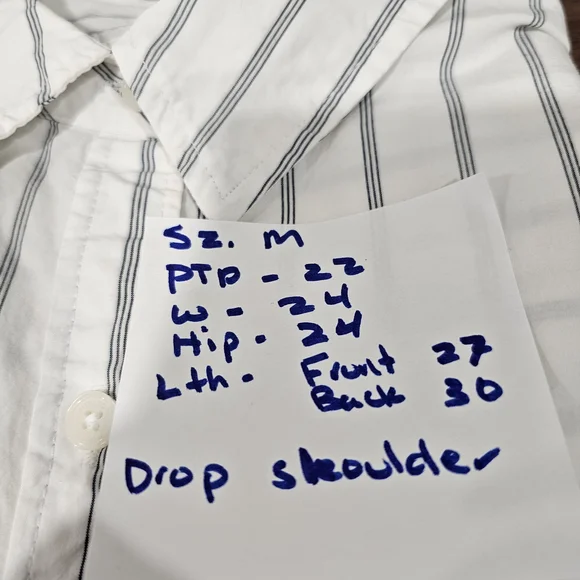 Sz. M
PTP - 22
W - 24
Hip - 24
Lth - Front 27
Back 30
Drop shoulder